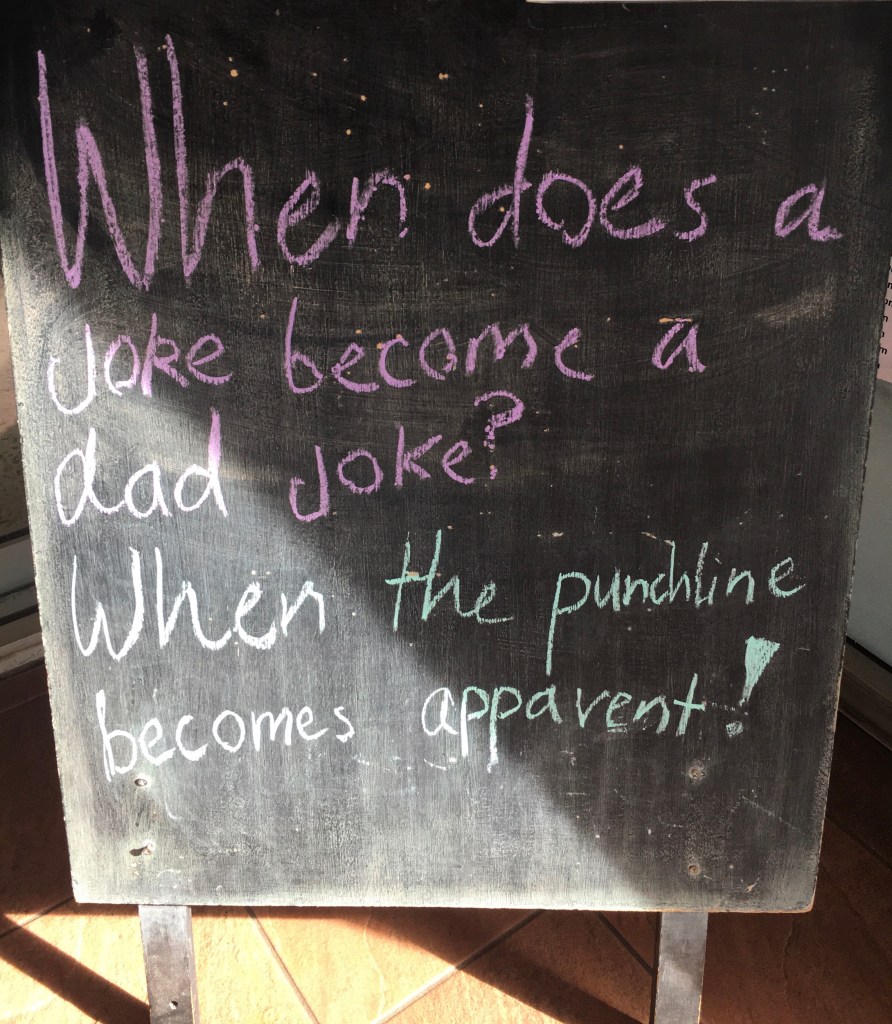 When does a
joke become a
dad joke?
When the punchline
becomes apparent!